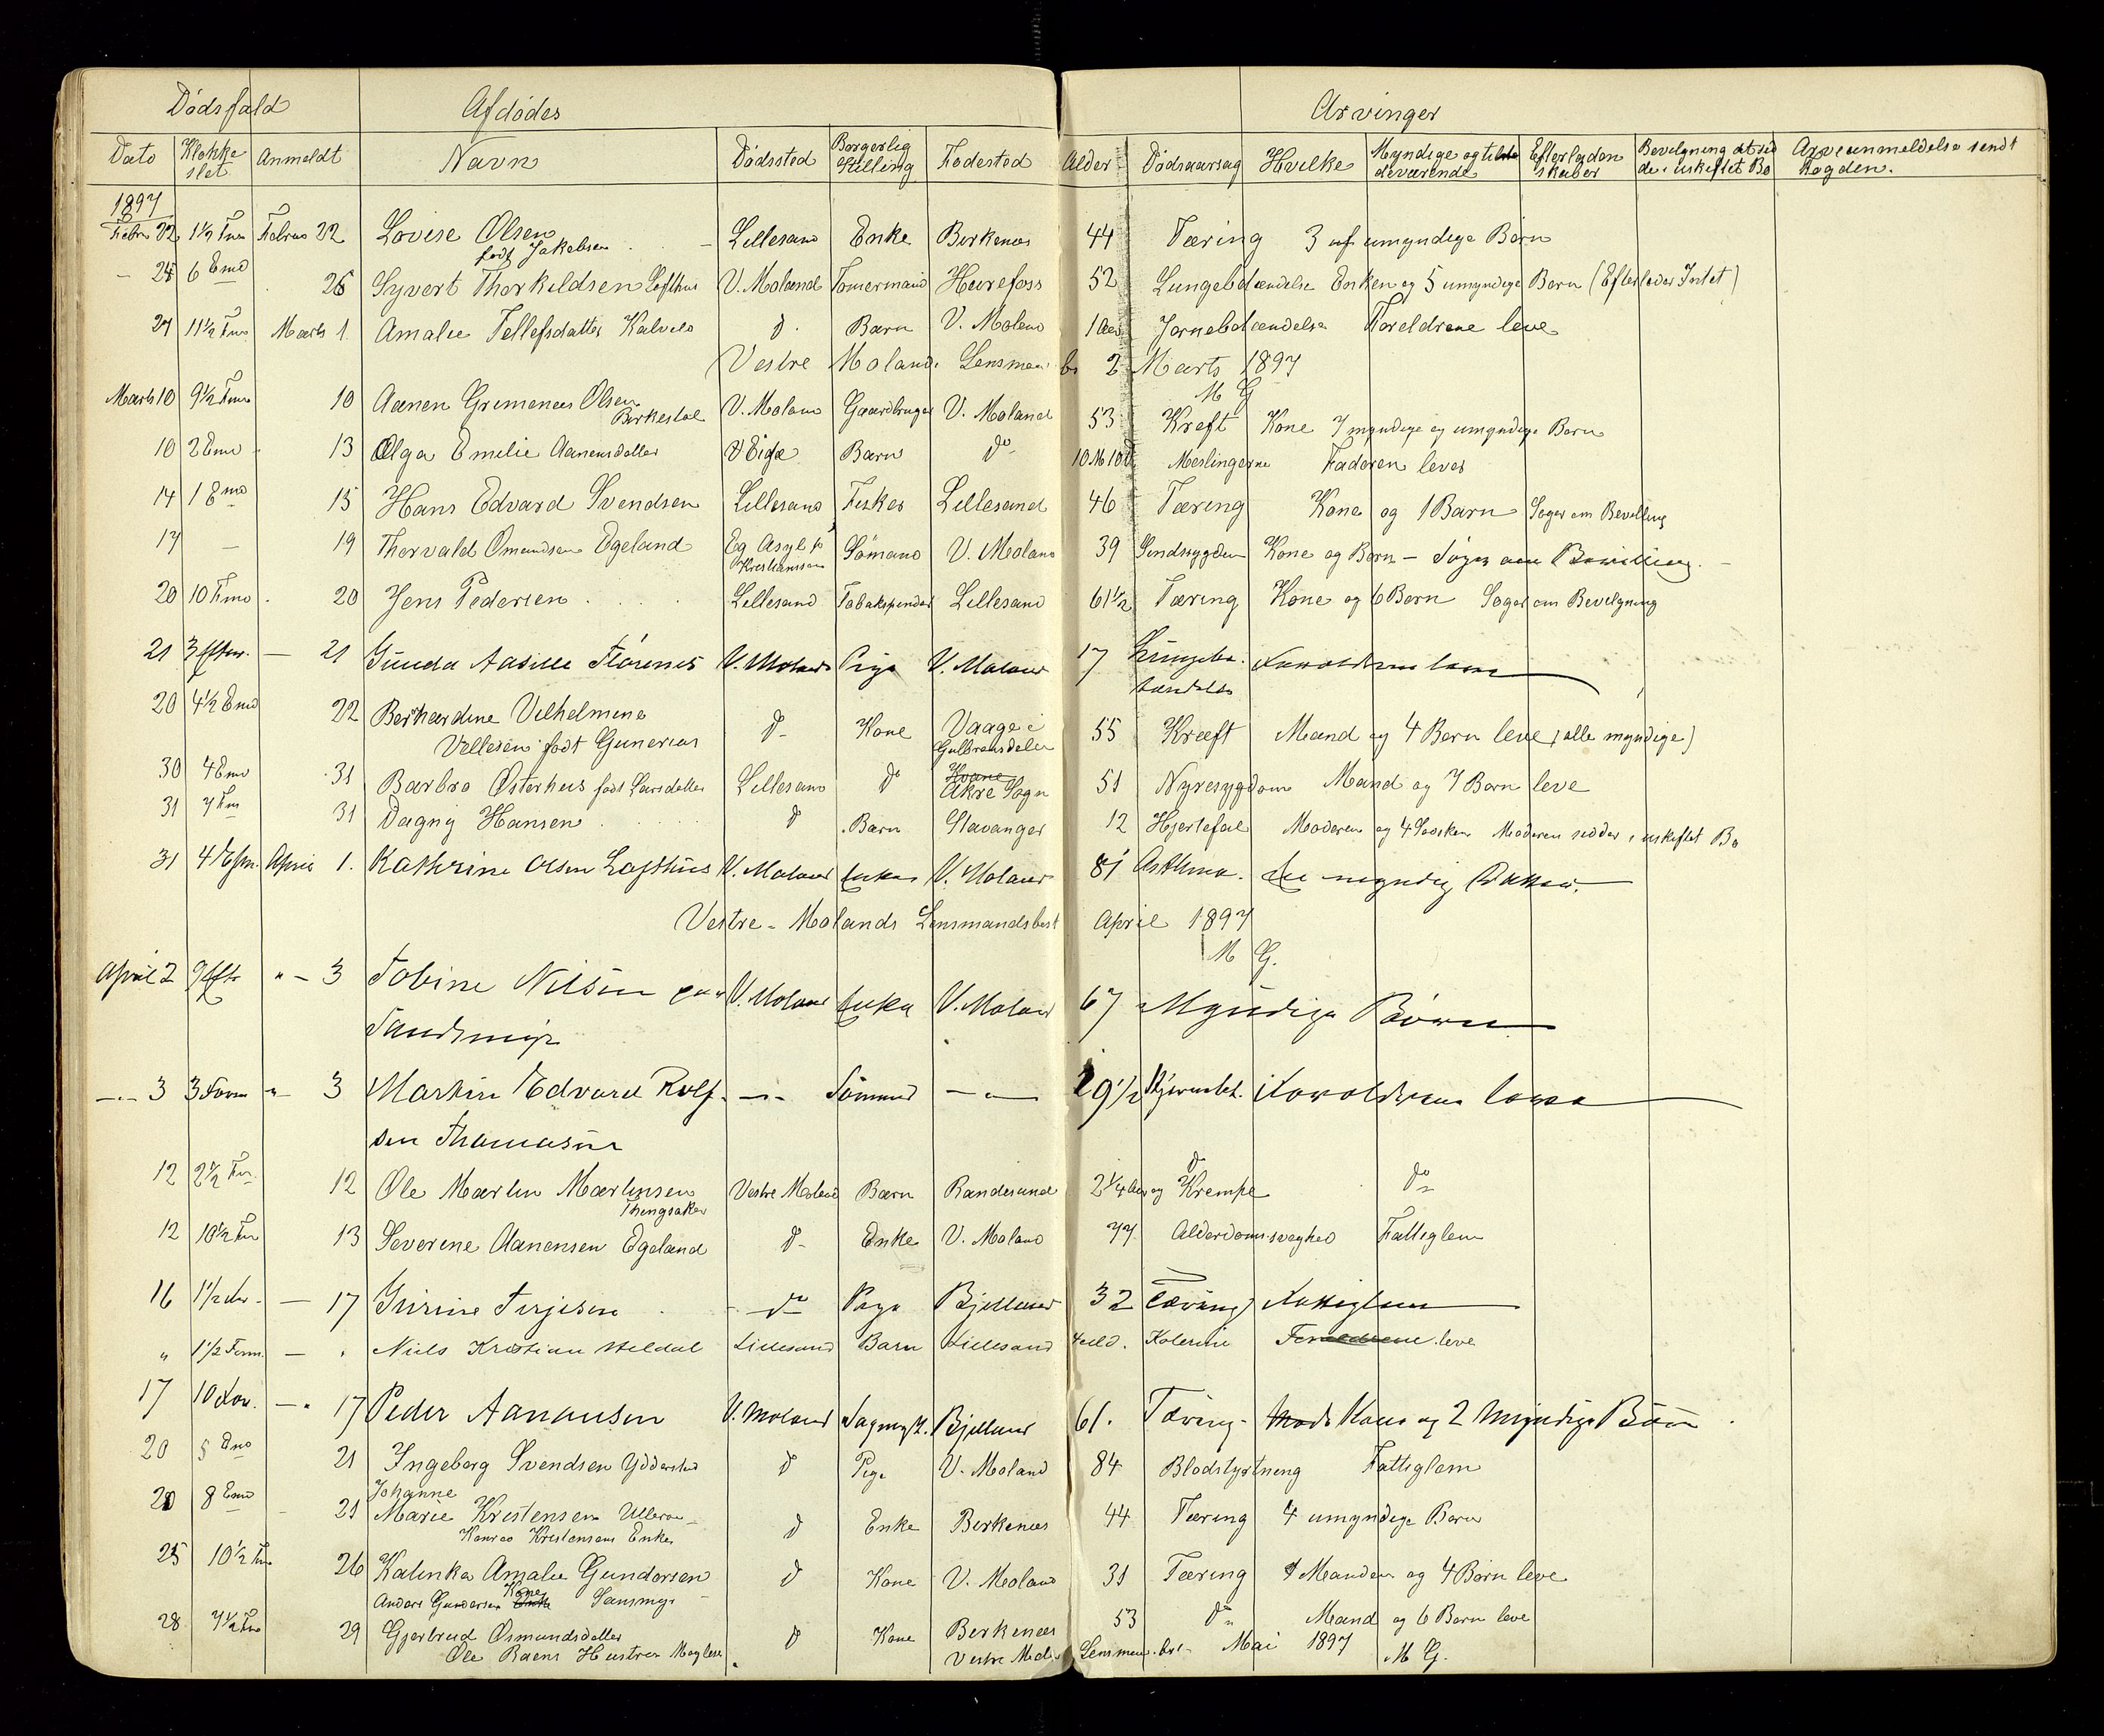 Dødsfald Afdødes Arvinger
Dato Klokkeslet Anmeldt Navn Dødssted Borgerlig Stilling Fødested Alder Dødsaarsag Hvilke Myndige og tilstedeværende Efterladenskaber Bevilgning at sidde i uskiftet Bo Arveanmeldelse sendt Fogden.
1897
Febru 22 1½ Fm Februa 22 Lovise Olsen Lillesand Enke Birkenæs 44 Tæring 3 uf umyndige Børn
født Jakobsen
- 25 6 Emd 26 Syvert Thorkildsen Lofthus V. Moland Tømermand Herefoss 52 Lungebetændelse Enken og 5 umyndige Børn (Efterlader Intet)
27 11½ Fm Marts 1 Amalie Tellefsdatter Kalvild d. Barn V. Moland 1 Aar Jernebetændelse Foreldrene leve
Vestre Molands Lensmans b. 2 Marts 1897
M G
Marts 10 9½ Fm 10 Aanen Grimenæs Olsen V. Moland Gaardbruger V. Moland 53 Kreft Kone 7 myndige og umyndige Børn
Birkestøl
10 2 Emd 13 Olga Emilie Aanensdatter V Eide Barn do 10 M 10 D Meslingerne Faderen lever
14 1 Emd 15 Hans Edvard Svendsen Lillesand Fisker Lillesand 46 Tæring Kone og 1 Barn Søger om Bevilling
17 - 19 Thorvald Omundsen Egeland Eg Asyl p Sømand V. Moland 39 Sindsygdom Kone og Børn - Søger om Bevilling. -
Kristianssan
20 10 Fmd 20 Jens Pedersen Lillesand Tobakspinder Lillesand 61½ Tæring Kone og 6 Børn Søger om Bevilgning
21 3 Efterm. - 21 Gunda Aasille Florenes V. Moland Pige V. Moland 17 Lungebe- Foreldrene leve
tændelse
20 4½ Emd 22 Berhardine Vilhelmine
Vellesen født Gunerius d- Kone Vaage i Gulbransdalen 55 Kræft Mand og 4 Børn leve (alle myndige)
30 4 Emd 31 Barbro Østerhus født Larsdatter Lillesand do Akre Sogn 51 Nyresygdom Mand og 7 Børn leve
31 7 Fm 31 Dagny Hansen d Barn Stavanger 12 Hjertefeil Moderen og 4 Sødsken Moderen sidder i uskiftet Bo
31 4 Efm. April 1. Kathrine Olsen Lofthus V. Moland Enke V. Moland 81 Asthma. En myndig Datter.
Vestre-Molands Lensmandsbest April 1897
M G.
April 2 9 Eftr " - 3 Tobine Nilsen paa V. Moland Enke V. Moland 67 Myndige Børn
Sandsmyr
-"- 3 3 Form "- 3 Martin Edvard Rolf- -"- Sømand -"- 29½ Hjernebet. Foreldrene leve
sen Thomassen
12 2½ Fm. 12 Ole Martin Martinsen Vestre Moland Barn Randesund 2¼ Aar og d Krempe do
Thingsaker
12 10½ Fm 13 Severine Aanensen Egeland d- Enke V. Moland 77 Alderdomssvaghed Fattiglem
16 1½ - 17 Gurine Terjesen do Pige Bjelland 32 Tæring Fattiglem
" 1½ Form. - " Niels Kristian Heldal Lillesand Barn Lillesand Kolerine Foreldrene leve
17 10 For. - " 17 Peder Aanausen V. Moland Bjelland 61. Tæring - Kone og 2 Myndige Børn
20 5 Emd 21 Ingeborg Svendsen Ydderstad d Pige V. Moland 84 Blodstyrtning Fattiglem
Johanne
20 8 Emd 21 Marie Kristensen Ulleraa d Enke Berkenæs 44 Tæring 4 umyndige Børn
Konrad Kristensens Enke
25 10½ Fm 26 Kalinka Amalie Gundersen d Kone V. Moland 31 Tæring Manden og 4 Børn leve
Anders Gundersen Kone Sansmyr
28 7½ Fm 29 Gjerbrud Osmundsdatter d Kone Berkenæs 53 do Mand og 6 Børn leve
Ole Raens Hustru Moglest Vestre Mol. Lensman. Best- Mai 1897 M G.